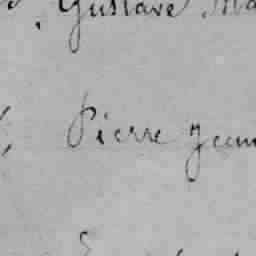 Gustave
Pierre Jean